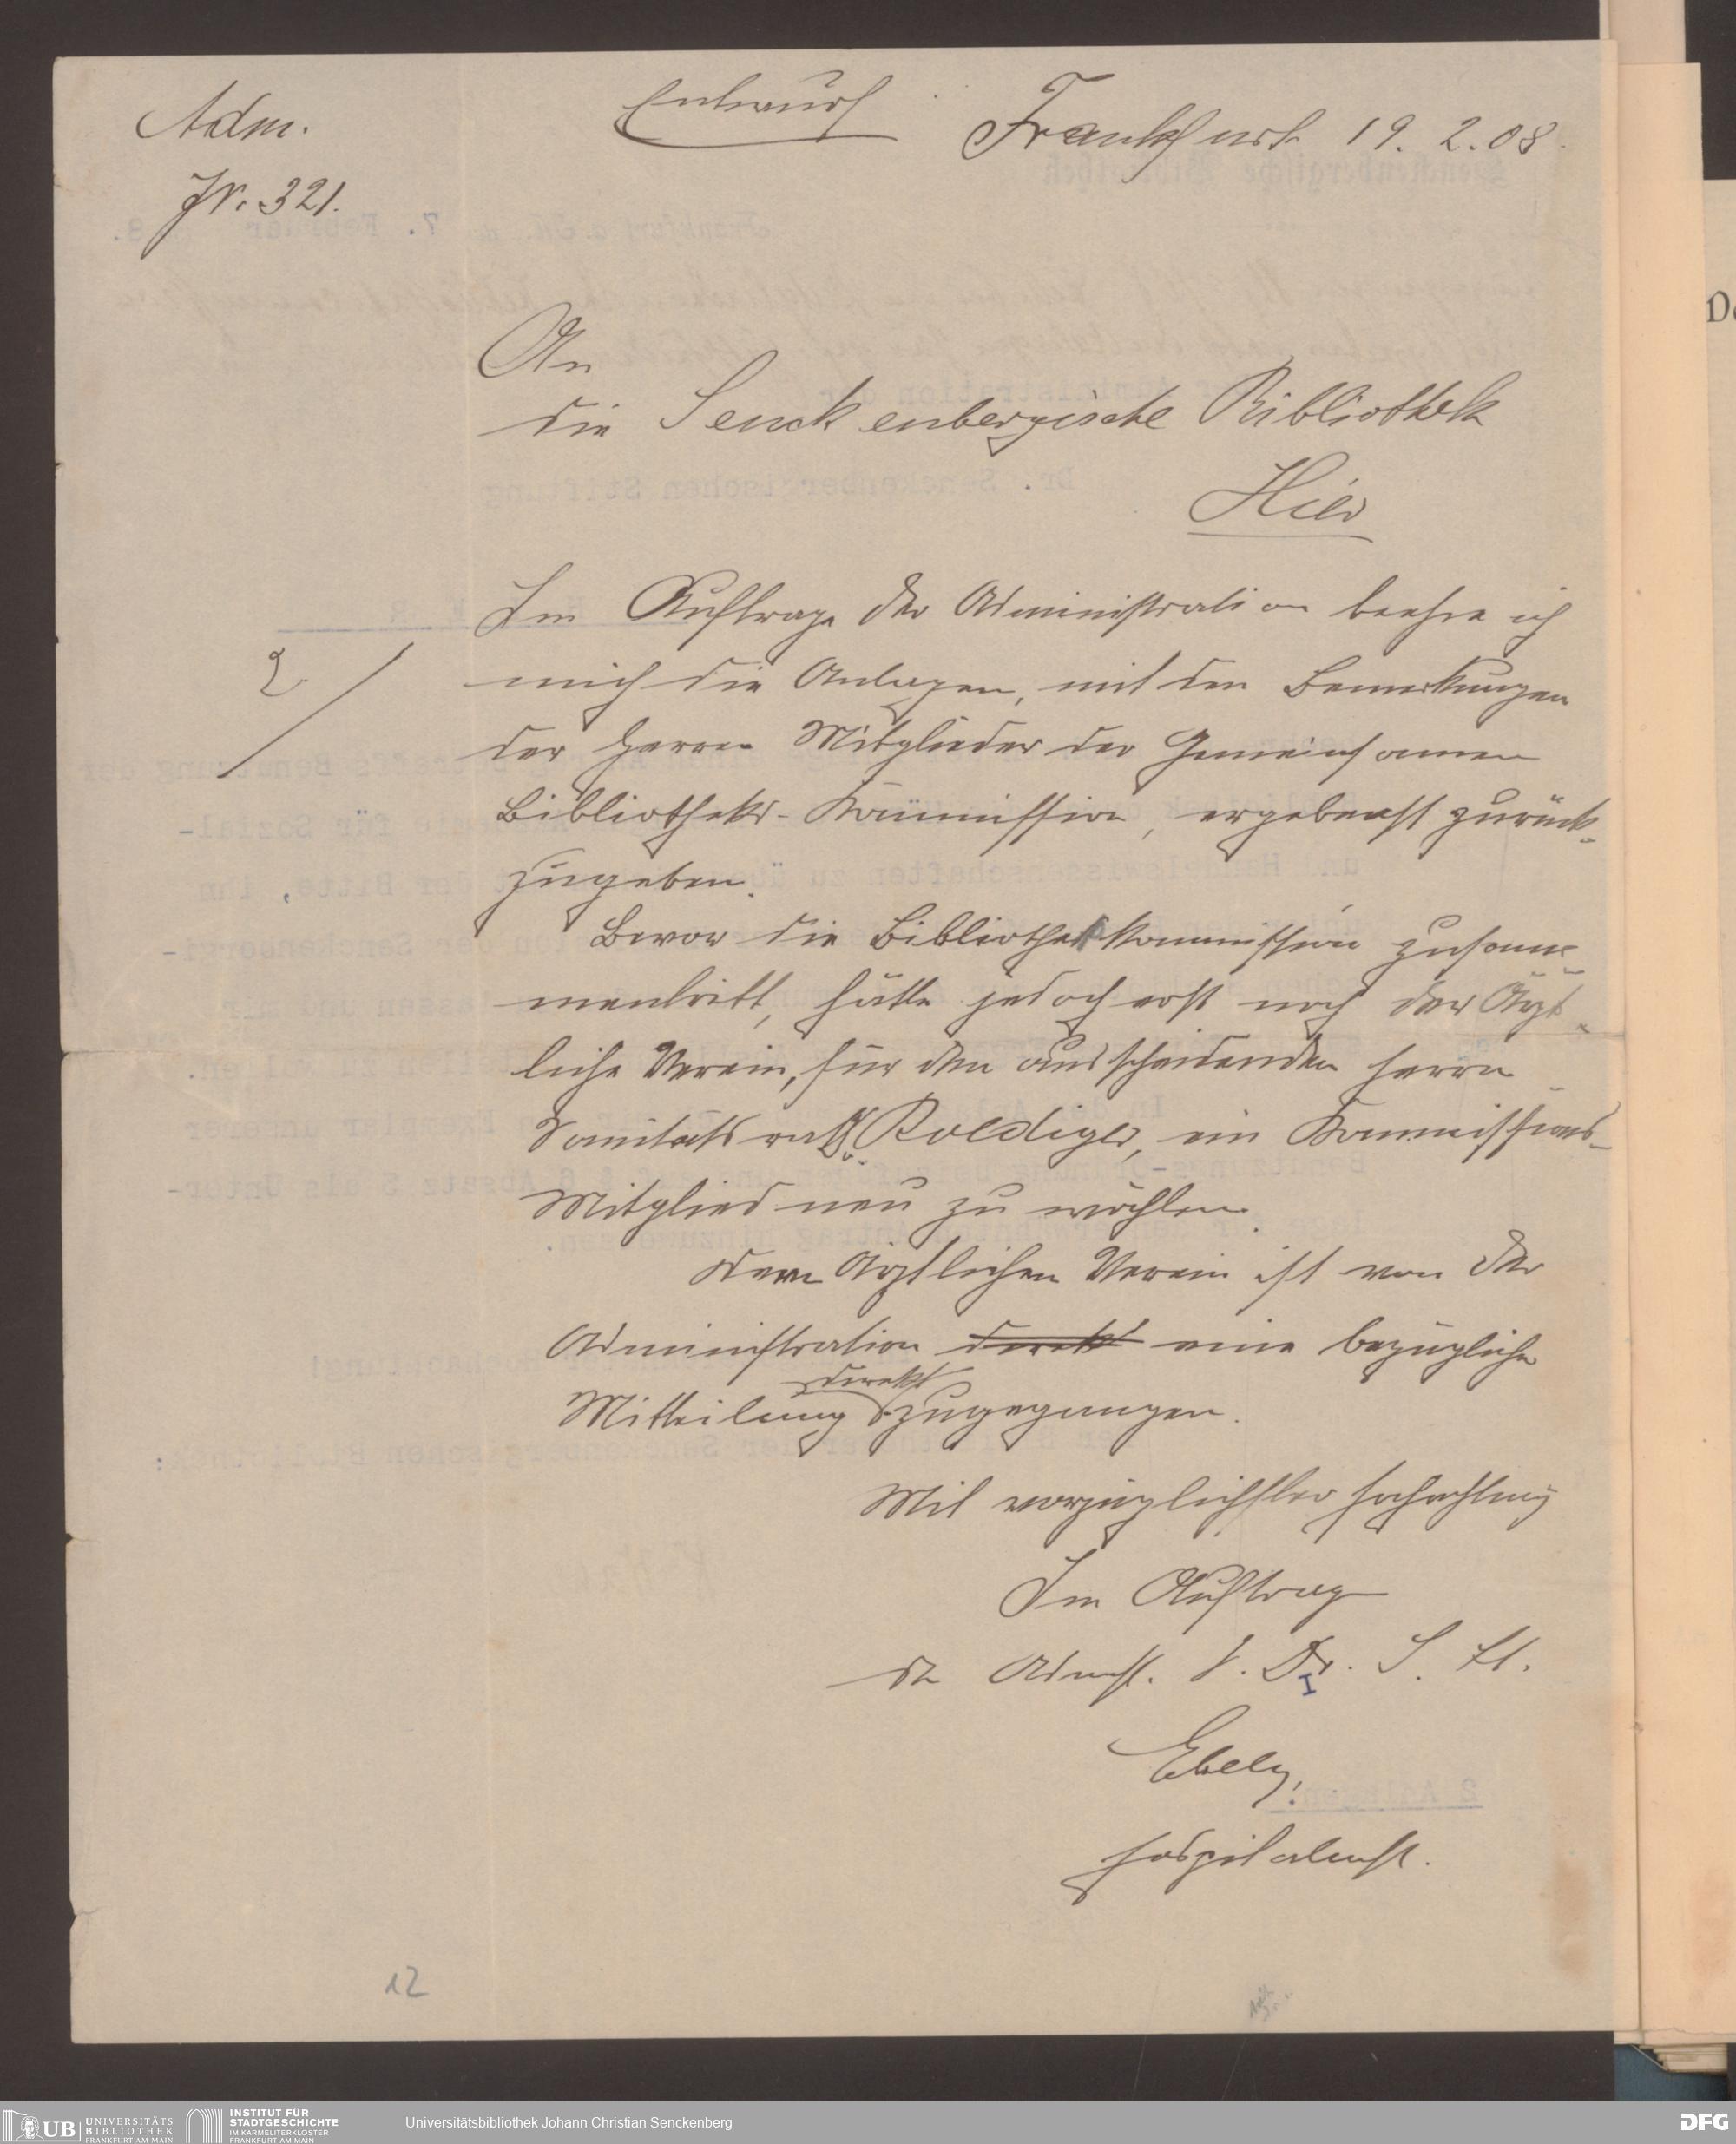 Adm.
JN. 321.
Entwurf
Frankfurt 19. 2. 08.
An
die Senckenbergische Bibliothek
Hier
Im Auftrage der Administration beehre ich
2
mich die Anlagen, mit den Bemerkungen
der Herren Mitglieder der Gemeinsamen
Bibliotheks-Kommission, ergebenst zurück-
zugeben.
Bevor die Bibliothekkommission zusam-
mentritt, hätte jedoch erst noch der Ärzt-
liche Verein, für den ausscheidenden Herrn
Sanitätsrath Roediger, ein Kommissions-
Mitglied neu zu wählen.
Dem Ärztlichen Verein ist von der
Administration direkt eine bezügliche
direkt
Mitteilung zugegangen.
Mit vorzüglichster Hochachtung
Im Auftrag
der Admst. d. Dr. S. St.
I
Ebeling,
Hospitalmst.
12
UB UNIVERSITÄTS
BIBLIOTHEK
FRANKFURT AM MAIN
INSTITUT FÜR
STADTGESCHICHTE
IM KARMELITERKLOSTER
FRANKFURT AM MAIN
Universitätsbibliothek Johann Christian Senckenberg
DFG